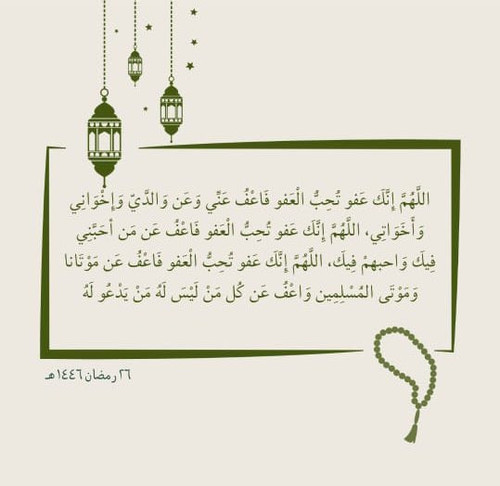 اللَّهُمَّ إِنَّكَ عَفو تُحِبُّ الْعَفو فَاعْفُ عَنِّي وَعَن وَالدَّيّ وَإِخْوَانِي
وَأَخَوَاتِي، اللَّهُمَّ إِنَّكَ عَفو تُحِبُّ الْعَفو فَاعْفُ عَن مَن أحَبَّنِي
فِيكَ وَاحبهمْ فِيكَ، اللَّهُمَّ إِنَّكَ عَفو تُحِبُّ الْعَفو فَاعْفُ عَن مَوْتَانا
وَمَوْتَى المُسْلِمِين وَاعْفُ عَن كُل مَنْ لَيْسَ لَهُ مَنْ يَدْعُو لَهُ
٢٦ رمضان ١٤٤٦هـ